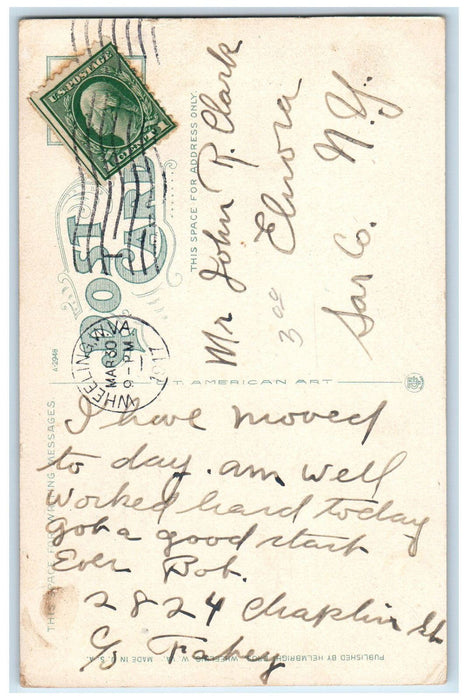 U.S. POSTAGE
1 CENT 1
POST CARD
WHEELING W. VA.
MAR 30
9 - PM
1917
A-2949
THIS SPACE FOR ADDRESS ONLY.
Mr John R. Clark
Elnora
N.Y.
Sar Co.
C.T. AMERICAN ART
THIS SPACE FOR WRITING MESSAGES
I have moved
to day. am well
worked hard today
got a good start
Ever Bob.
2824 Chaplin St
c/o Fahey
PUBLISHED BY HELMBRIGHT BROS. WHEELING, W. VA. MADE IN U.S.A.